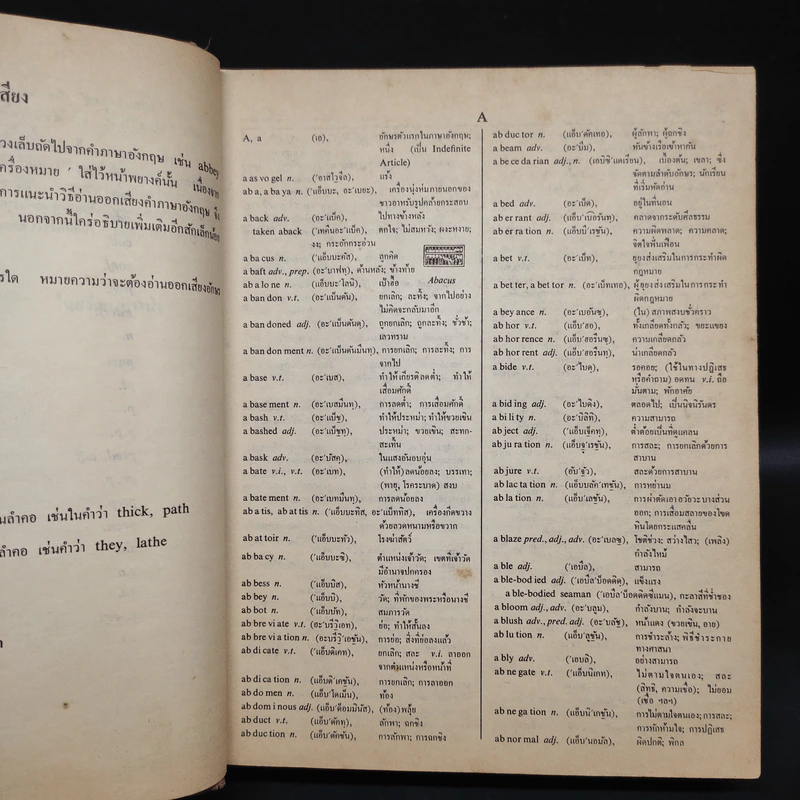 สียง
วงเล็บถัดไปจากคำภาษาอังกฤษ เช่น abbey
ครื่องหมาย ' ใส่ไว้หน้าพยางค์นั้น เนื่องจาก
การแนะนำวิธีอ่านออกเสียงคำภาษาอังกฤษ ซึ่ง
นอกจากนี้ใคร่อธิบายเพิ่มเติมอีกสักเล็กน้อย
รใด หมายความว่าจะต้องอ่านออกเสียงอักษร
นลำคอ เช่นในคำว่า thick, path
ลำคอ เช่นคำว่า they, lathe
A
A, a (เอ), อักษรตัวแรกในภาษาอังกฤษ;
หนึ่ง (เป็น Indefinite
Article)
a as vo gel n. ('อาสโว่จึล), แร้ง
ab a, a ba ya n. ('แอ็บบะ, อะ'เบยะ), เครื่องนุ่งห่มภายนอกของ
ชาวอาหรับรูปคล้ายกระสอบ
a back adv. (อะ'แบ็ค), ไปทางข้างหลัง
taken aback ('เทคึนอะ'แบ็ค), ตกใจ; ไม่สมหวัง; ผงะหงาย;
งง; กระอักกระอ่วน
a ba cus n. ('แอ็บบะคัส), ลูกคิด
a baft adv., prep. (อะ'บาฟท), ด้านหลัง; ข้างท้าย
ab a lo ne n. ('แอ็บบะ'โลนิ), เป๋าฮื้อ
Abacus
a ban don v.t. (อะ'แบ็นดัน), ยกเลิก; ละทิ้ง; จากไปอย่าง
ไม่คิดจะกลับมาอีก
a ban doned adj. (อะ'แบ็นดันดฺ), ถูกยกเลิก; ถูกละทิ้ง; ชั่วช้า;
เลวทราม
a ban don ment n. (อะ'แบ็นดันมึนทฺ), การยกเลิก; การละทิ้ง; การ
จากไป
a base v.t. (อะ'เบส), ทำให้เกียรติลดต่ำ; ทำให้
เสื่อมศักดิ์
a base ment n. (อะ'เบสมึนทฺ), การลดต่ำ; การเสื่อมศักดิ์
a bash v.t. (อะ'แบ็ช), ทำให้ประหม่า; ทำให้ขวยเขิน
a bashed adj. (อะ'แบ็ชทฺ), ประหม่า; ขวยเขิน; สะทก-
สะเทิ้น
a bask adv. (อะ'บัสคฺ), ในแสงอันอบอุ่น
a bate v.i., v.t. (อะ'เบท), (ทำให้) ลดน้อยลง; บรรเทา;
(พายุ, โรคระบาด) สงบ
a bate ment n. (อะ'เบทมึนทฺ), การลดน้อยลง
ab a tis, ab at tis n. ('แอ็บบะทิส, อะ'แบ็ททิส), เครื่องกีดขวาง
ด้วยลวดหนามหรือขวาก
ab at toir n. ('แอ็บบะทัว), โรงฆ่าสัตว์
ab ba cy n. ('แอ็บบะซิ), ตำแหน่งเจ้าวัด; เขตที่เจ้าวัด
มีอำนาจปกครอง
ab bess n. ('แอ็บบิส), หัวหน้านางชี
ab bey n. ('แอ็บบิ), วัด; ที่พักของพระหรือนางชี
ab bot n. ('แอ็บบัท), สมภารวัด
ab bre vi ate v.t. (อะ'บรีวิ'เอท), ย่อ; ทำให้สั้นลง
ab bre vi a tion n. (อะบรีวิ'เอชัน), การย่อ; สิ่งที่ย่อลงแล้ว
ab di cate v.t. ('แอ็บดิเคท), ยกเลิก; สละ v.i. ลาออก
จากตำแหน่งหรือหน้าที่
ab di ca tion n. (แอ็บดิ'เคชัน), การยกเลิก; การลาออก
ab do men n. (แอ็บ'โดเม็น), ท้อง
ab dom i nous adj. (แอ็บ'ด็อมมินัส), (ท้อง) พลุ้ย
ab duct v.t. (แอ็บ'ดักทฺ), ลักพา; ฉกชิง
ab duc tion n. (แอ็บ'ดักชัน), การลักพา; การฉกชิง
ab duc tor n. (แอ็บ'ดักเทอ), ผู้ลักพา; ผู้ฉกชิง
a beam adv. (อะ'บีม), หันข้างเรือเข้าหากัน
a be ce da rian adj., n. (เอบีซี'แดเรียน), เบื้องต้น; เขลา; ซึ่ง
จัดตามลำดับอักษร; นักเรียน
ที่เริ่มหัดอ่าน
a bed adv. (อะ'เบ็ด), อยู่ในที่นอน
ab er rant adj. (แอ็บ'เออรันทฺ), คลาดจากระดับศีลธรรม
ab er ra tion n. (แอ็บบิ'เรชัน), ความผิดพลาด; ความคลาด;
จิตใจฟั่นเฟือน
a bet v.t. (อะ'เบ็ท), ยุยงส่งเสริมในการกระทำผิด
กฎหมาย
a bet ter, a bet tor n. (อะ'เบ็ทเทอ), ผู้ยุยงส่งเสริมในการกระทำ
ผิดกฎหมาย
a bey ance n. (อะ'เบอันซฺ), (ใน) สภาพสงบชั่วคราว
ab hor v.t. (แอ็บ'ฮอ), ทั้งเกลียดทั้งกลัว; ขยะแขยง
ab hor rence n. (แอ็บ'ฮอรึนซฺ), ความเกลียดกลัว
ab hor rent adj. (แอ็บ'ฮอรึนทฺ), น่าเกลียดกลัว
a bide v.t. (อะ'ไบดฺ), รอคอย; (ใช้ในทางปฏิเสธ
หรือคำถาม) อดทน v.i. ถือ
มั่นตาม; พักอาศัย
a bid ing adj. (อะ'ไบดิง), ตลอดไป; เป็นนิจนิรันดร
a bil i ty n. (อะ'บิลิทิ), ความสามารถ
ab ject adj. ('แอ็บเจ็คทฺ), ต่ำต้อยเป็นที่ดูแคลน
ab ju ra tion n. (แอ็บจุ'เรชัน), การสละ; การยกเลิกด้วยการ
สาบาน
ab jure v.t. (อับ'จัว), สละด้วยการสาบาน
ab lac ta tion n. (แอ็บบลัค'เทชัน), การหย่านม
ab la tion n. (แอ็บ'เลชัน), การผ่าตัดเอาอวัยวะบางส่วน
ออก; การเสื่อมสลายของโขด
หินโดยกระแสคลื่น
a blaze pred., adj., adv. (อะ'เบลซฺ), โชติช่วง; สว่างไสว; (เพลิง)
กำลังไหม้
a ble adj. ('เอบึล), สามารถ
a ble-bod ied adj. ('เอบึล'บ็อดดิด), แข็งแรง
a ble-bodied seaman ('เอบึล'บ็อดดิดซีแมน), กะลาสีที่ช่ำชอง
a bloom adj., adv. (อะ'บลูม), กำลังบาน; กำลังจะบาน
a blush adv., pred. adj. (อะ'บลัช), หน้าแดง (ขวยเขิน, อาย)
ab lu tion n. (แอ็บ'ลูชัน), การชำระล้าง; พิธีชำระกาย
ทางศาสนา
a bly adv. ('เอบลิ), อย่างสามารถ
ab ne gate v.t. ('แอ็บนิเกท), ไม่ตามใจตนเอง; สละ
(สิทธิ, ความเชื่อ); ไม่ยอม
(เชื่อ ฯลฯ)
ab ne ga tion n. (แอ็บนิ'เกชัน), การไม่ตามใจตนเอง; การสละ;
การหักห้ามใจ; การปฏิเสธ
ab nor mal adj. (แอ็บ'นอมัล), ผิดปกติ; พิกล